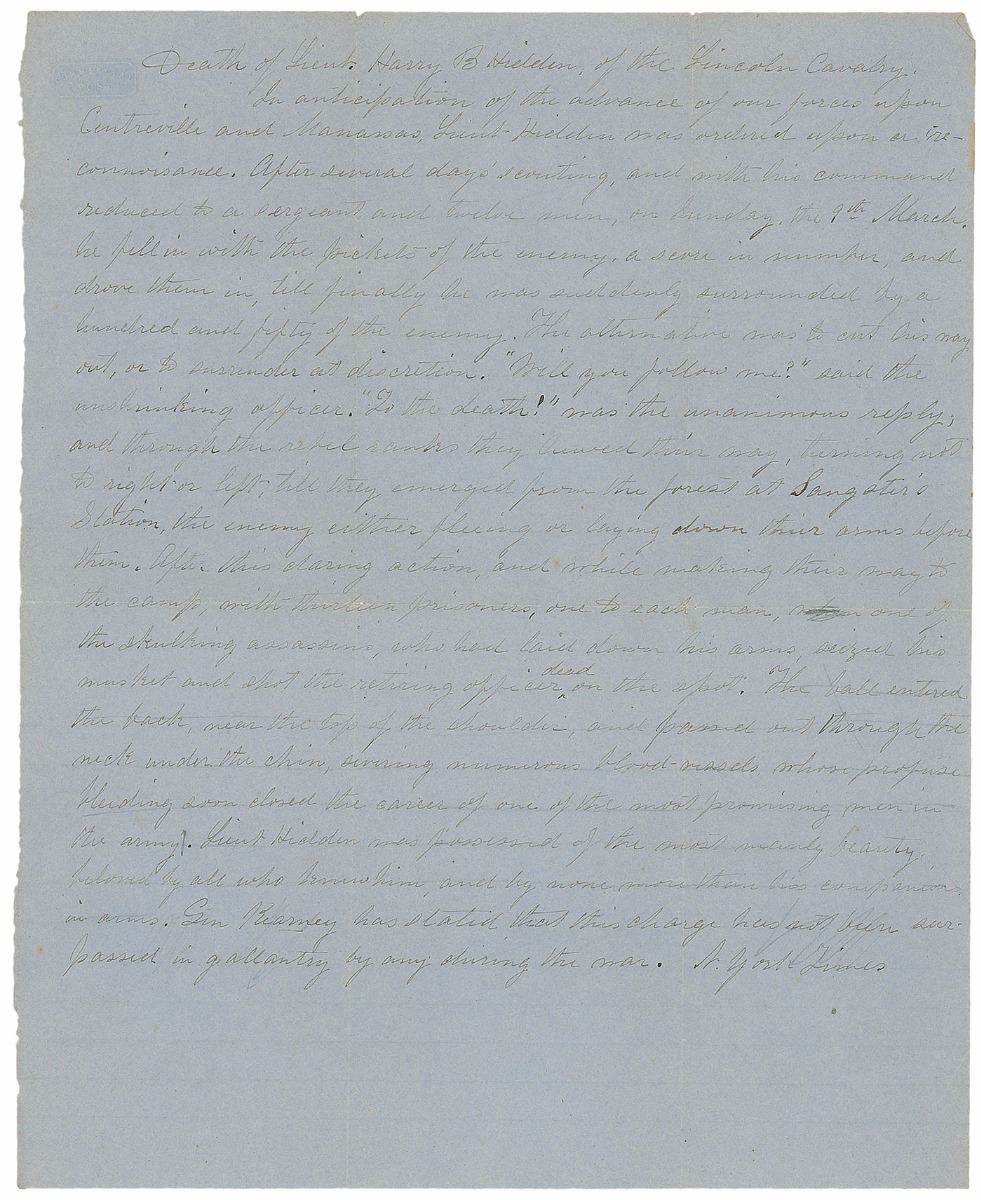 Death of Lieut. Harry B Hidden, of the Lincoln Cavalry.
In anticipation of the advance of our forces upon
Centreville and Manassas, Lieut Hidden was ordered upon a re-
connoisance. After several day's scouting, and with his command
reduced to a sergeant and twelve men, on Sunday, the 9th March,
he fell in with the pickets of the enemy, a score in number, and
drove them in, till finally he was suddenly surrounded by a
hundred and fifty of the enemy. The alternative was to cut his way
out, or to surrender at discretion. "Will you follow me?" said the
unshrinking officer. "To the death!" was the unanimous reply;
and through the rebel ranks they hewed their way, turning not
to right or left, till they emerged from the forest at Sangster's
Station, the enemy either fleeing or laying down their arms before
them. After this daring action, and while making their way to
the camp, with thirteen prisoners, one to each man, one of
the skulking assassins, who had laid down his arms, seized his
musket and shot the retiring officer dead on the spot. The ball entered
the back, near the top of the shoulder, and passed out through the
neck under the chin, severing numerous blood-vessels, whose profuse
bleeding soon closed the career of one of the most promising men in
the army. Lieut Hidden was possessed of the most manly beauty,
beloved by all who knew him, and by none more than his companions
in arms. Gen Kearney has stated that this charge has not been sur-
passed in gallantry by any during the war. N. York Times